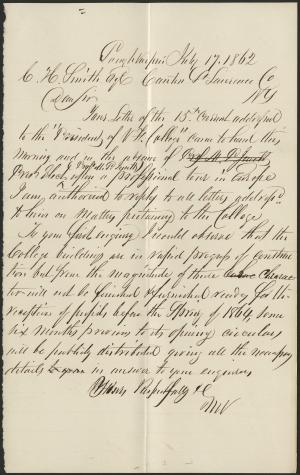 Poughkeepsie July 17. 1862
C. H. Smith Esq Canton St Lawrence Co
NY
Dear Sir
Your letter of the 15th Current addressed
to the "President of V. F. College" came to hand this
morning and in the absence of
on a professional tour in Europe
I am authorized to reply to all letters addressd
to him on matters pertaining to the College
To your first inquiry I would observe that the
College buildings are in rapid progress of construc
tion but from the magnitude of their Charac
ter will not be finished & furnished ready for the
reception of pupils before the Spring of 1864, some
six months previous to its opening circulars
will be publicly distributed giving all the necessary
details in answer to your enquiries
Yours Respectfully &c
MV